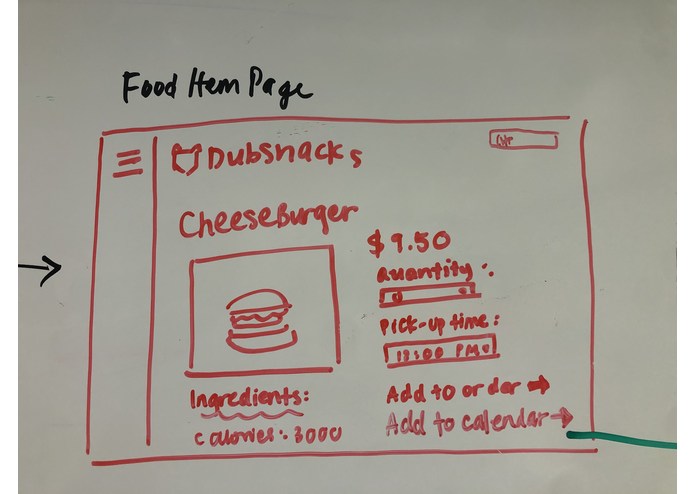 Food Item Page
DubSnacks
CheeseBurger
$9.50
quantity:
Pick-up time:
Ingredients:
Add to order
calories: 3000
Add to calendar